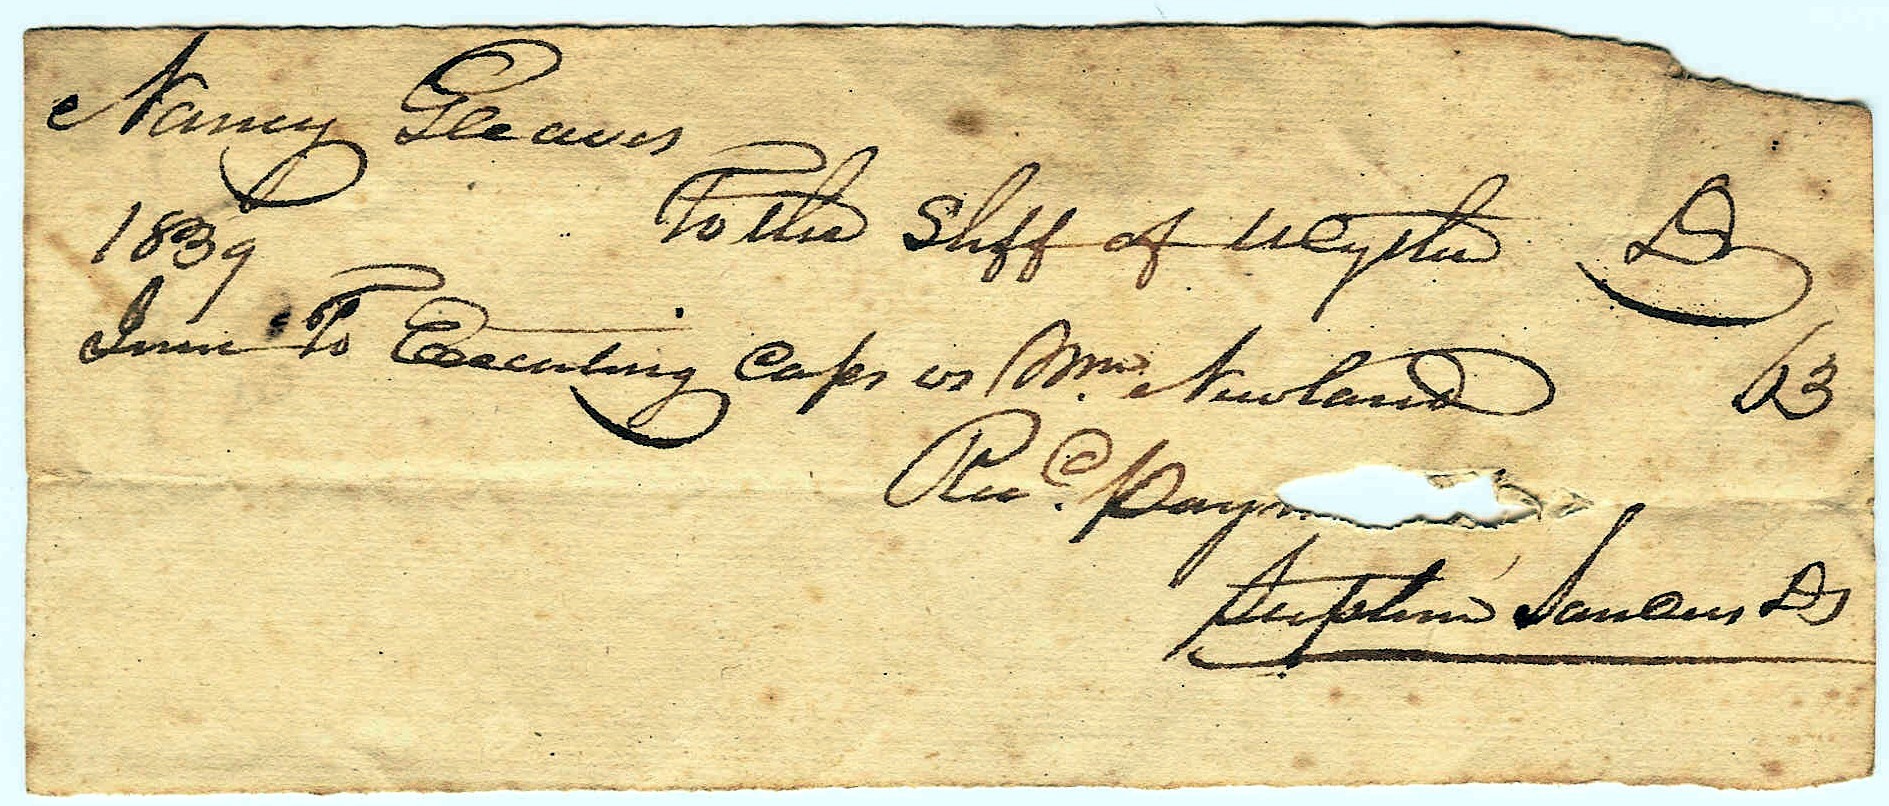 Nancy Gleaves
To the Shff of Wythe Dr
1839
June To Executing Caps vs Wm. Newland 63
Recd. paym
Stephen Sanders DS